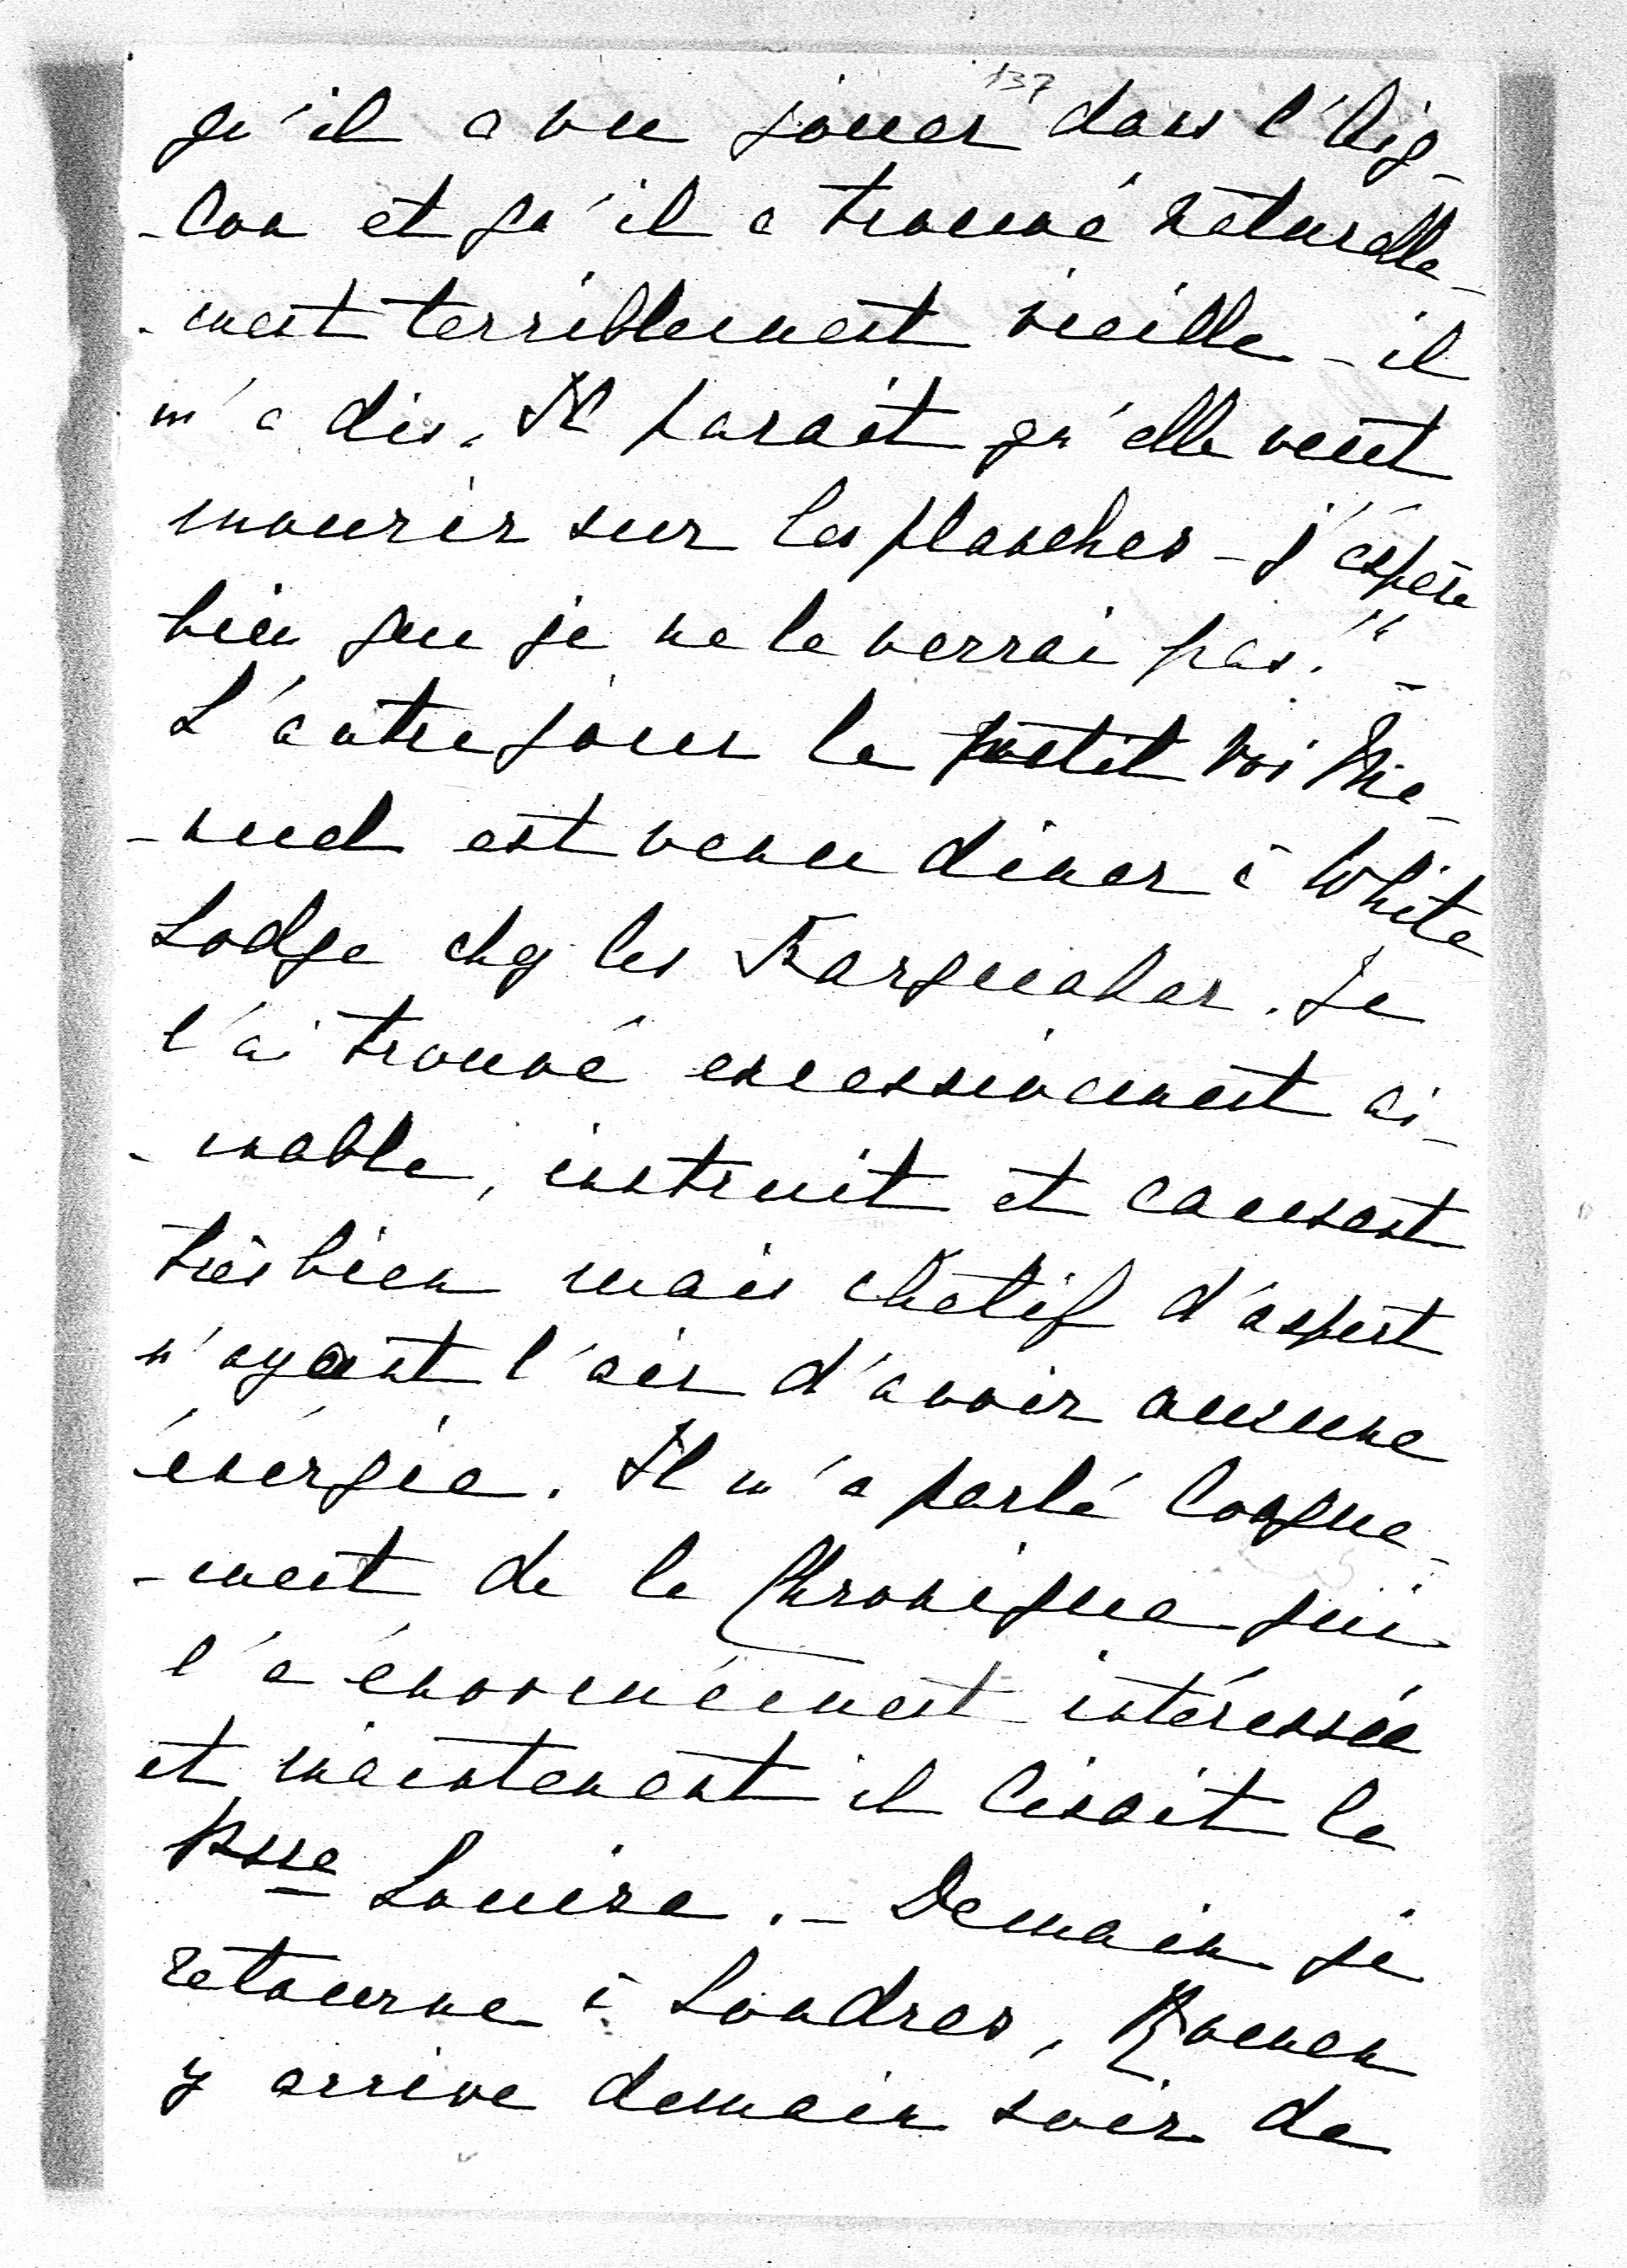 137
qu'il a vu jouer dans l'Aig-
-lon et qu'il a trouvé naturelle-
-ment terriblement vieille – il
m'a dis. Il parait qu'elle veut
mourir sur les planches – j'éspère
bien que je ne le verrai pas!" –
L'autre jour le petit roi Ma-
-nuel est venu diner à White
Lodge chez les Farquahar. Je
l'ai trouvé excessivement ai-
-mable, instruit et causant
très bien mais chetif d'aspect
n'ayant l'air d'avoir aucune
énérgie. Il m'a parlé longue-
-ment de la Chronique qui
l'a énormément intéressée
et maintenant il lisait la
Psse Louise. – Demain je
retourne à Londres,
y arrive demain soir de